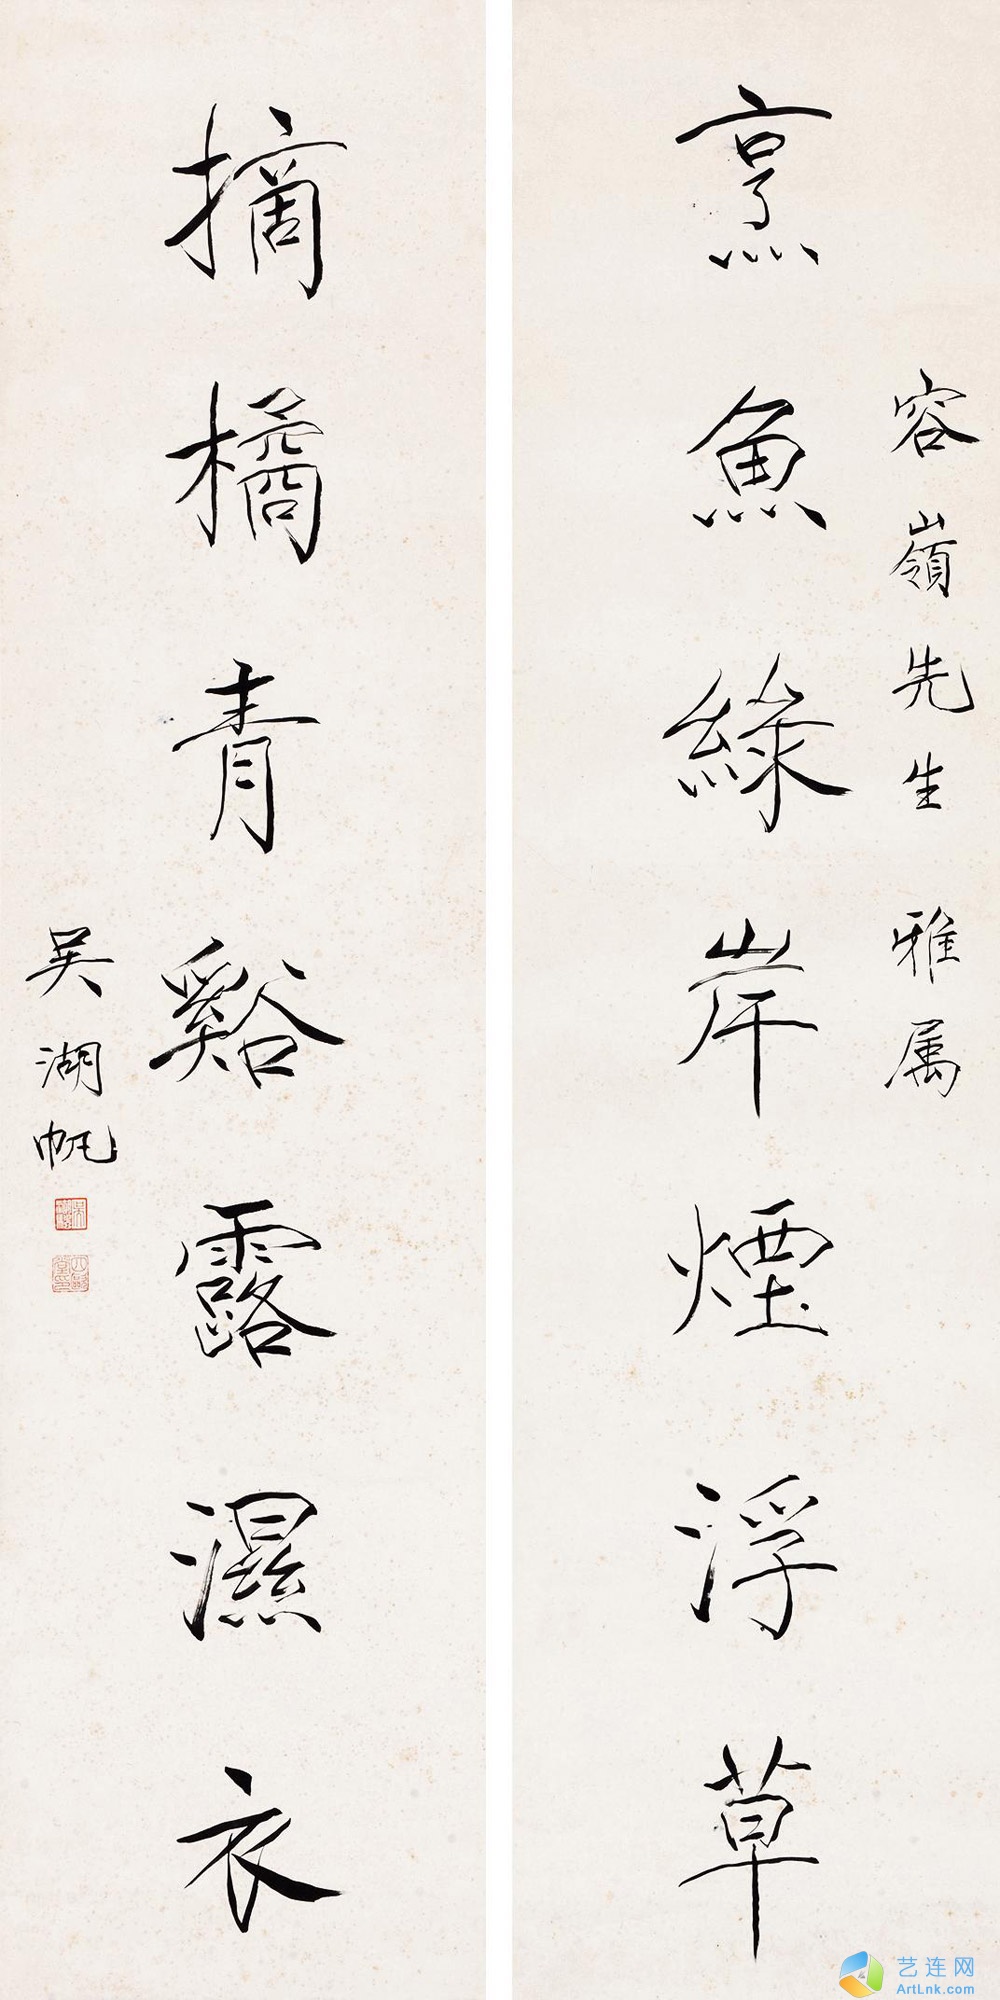 容嶺先生雅属
烹魚綠岸煙浮草
摘橘青谿露濕衣
吴湖帆
艺连网
ArtLnk.com